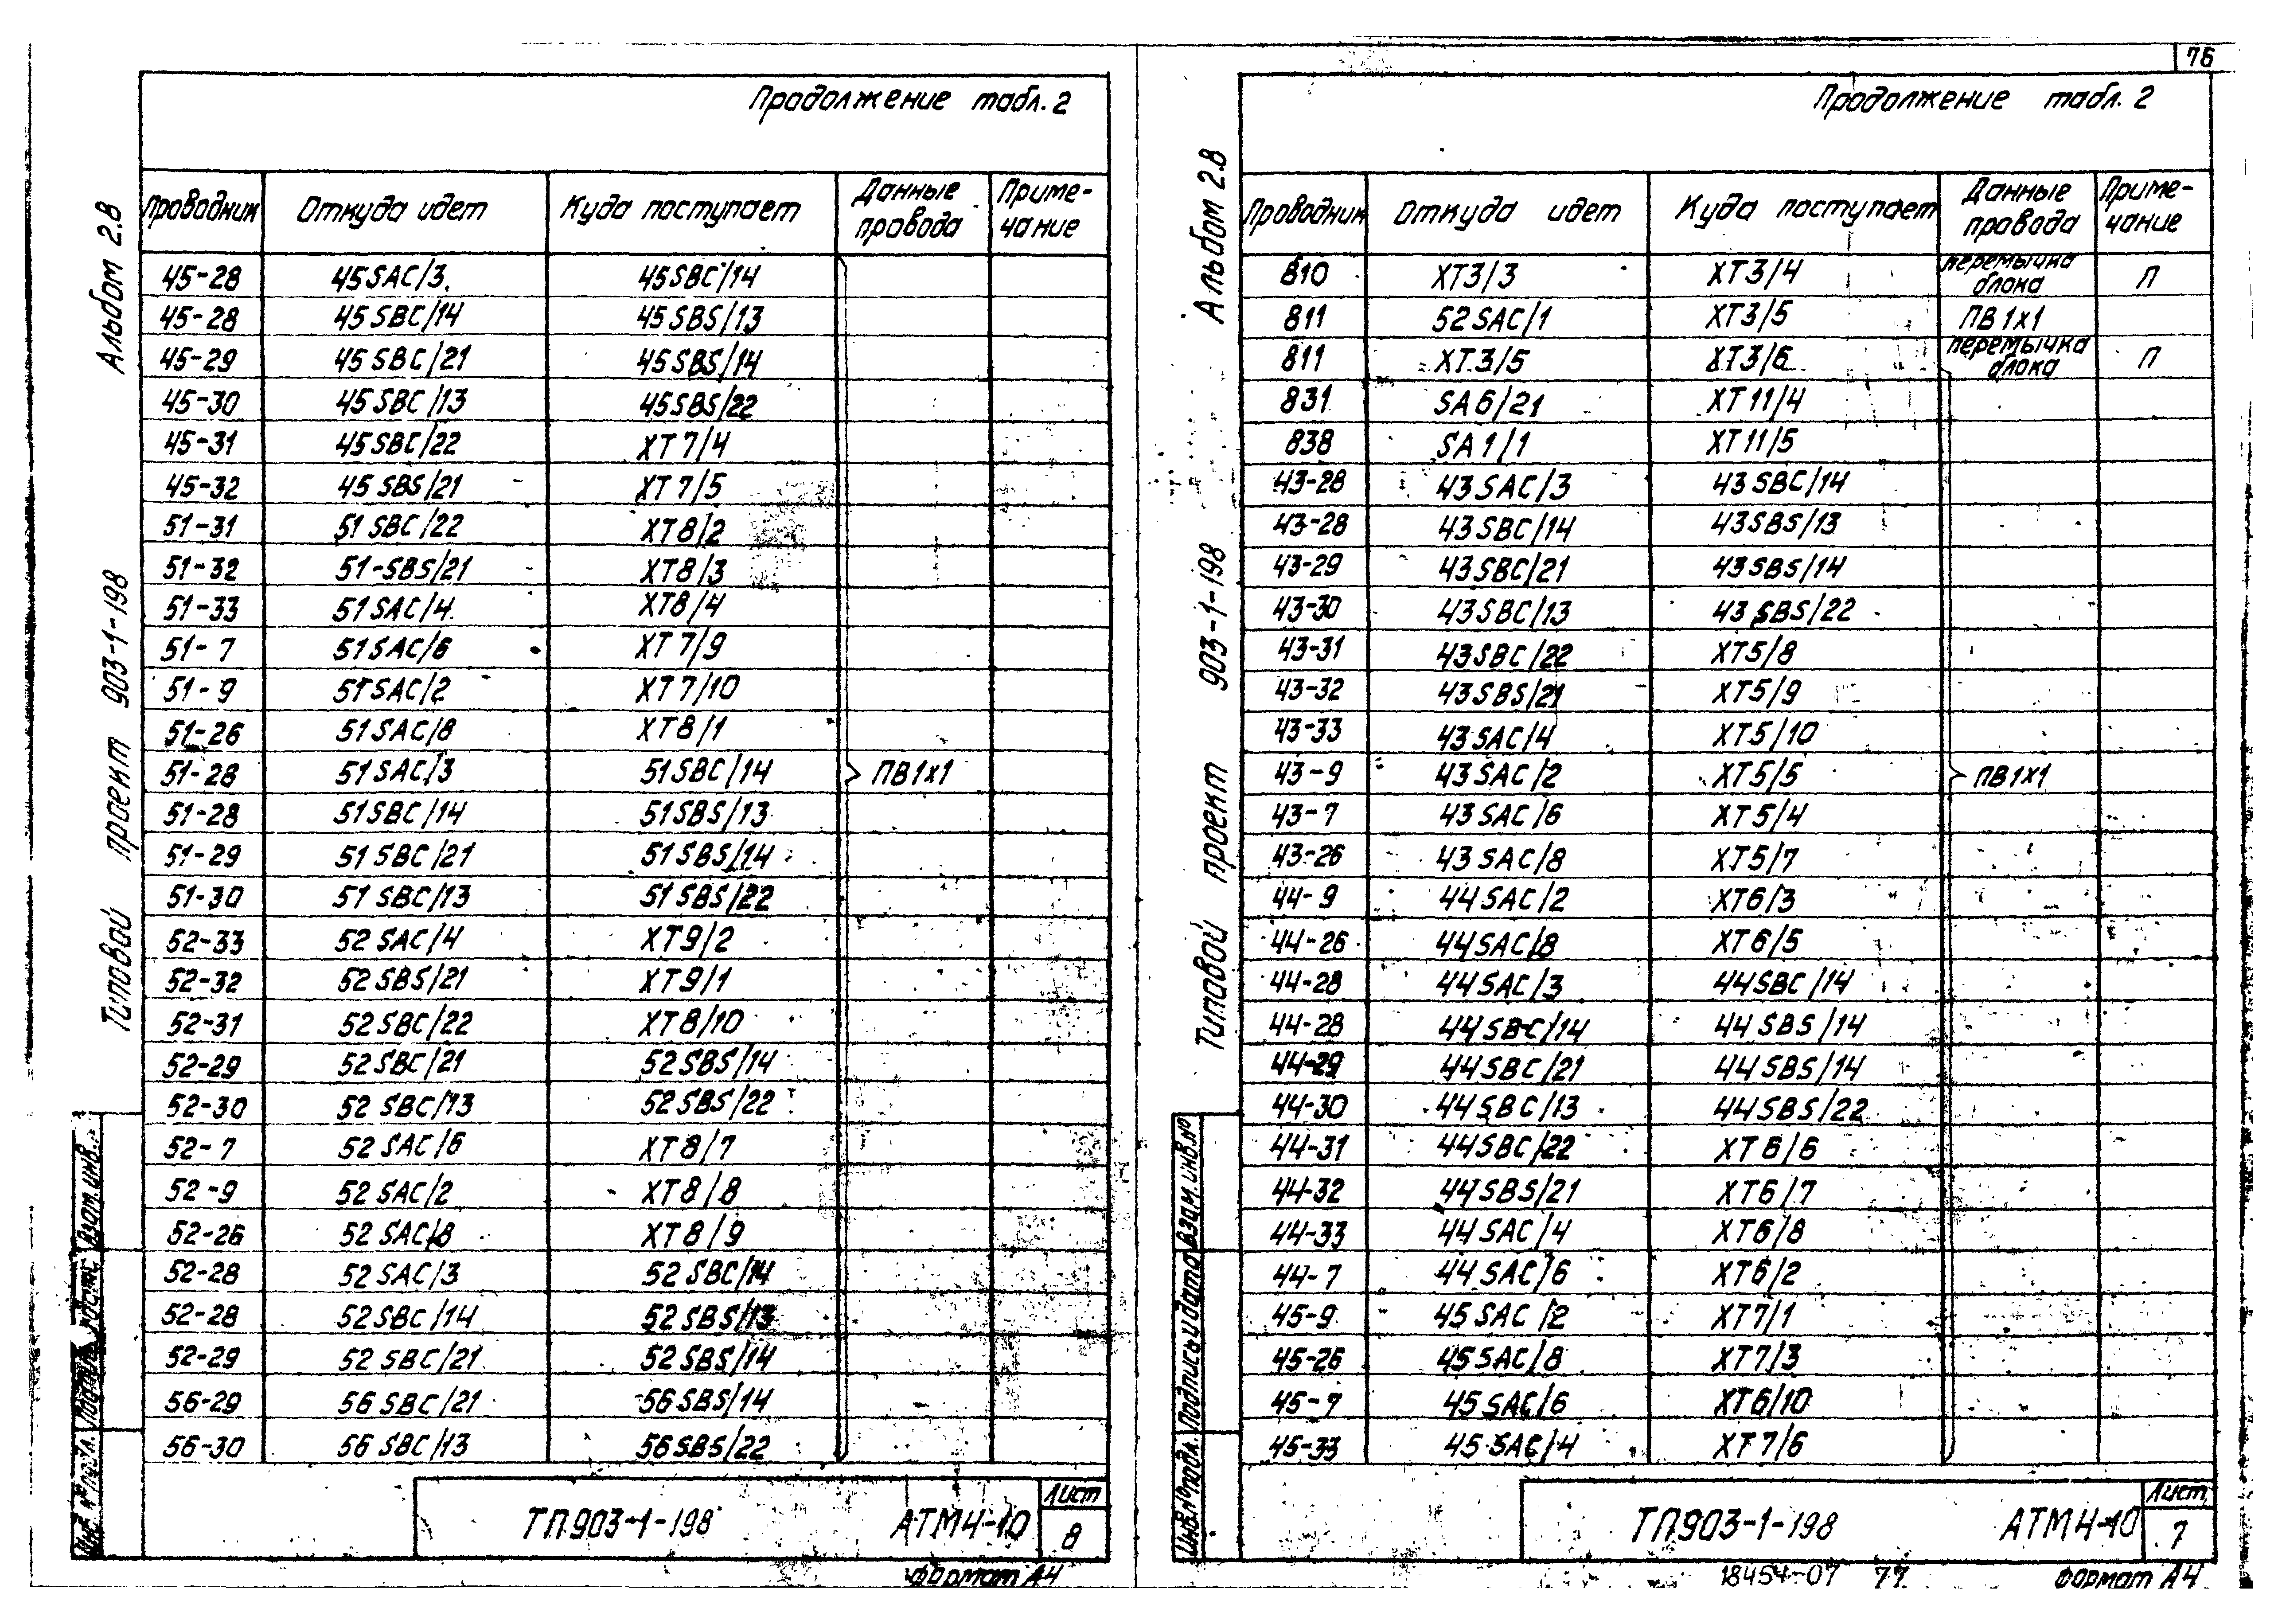 76
Продолжение табл. 2
Альбом 2.8
Типовой проект 903-1-198
Проводник Откуда идет Куда поступает Данные провода Приме-чание
45-28 45SAC/3 45SBC/14
45-28 45SBC/14 45SBS/13
45-29 45SBC/21 45SBS/14
45-30 45SBC/13 45SBS/22
45-31 45SBC/22 XT7/4
45-32 45SBS/21 XT7/5
51-31 51SBC/22 XT8/2
51-32 51-SBS/21 XT8/3
51-33 51SAC/4 XT8/4
51-7 51SAC/6 XT7/9
51-9 51SAC/2 XT7/10
51-26 51SAC/8 XT8/1
51-28 51SAC/3 51SBC/14 ПВ1х1
51-28 51SBC/14 51SBS/13
51-29 51SBC/21 51SBS/14
51-30 51SBC/13 51SBS/22
52-33 52SAC/4 XT9/2
52-32 52SBS/21 XT9/1
52-31 52SBC/22 XT8/10
52-29 52SBC/21 52SBS/14
52-30 52SBC/13 52SBS/22
52-7 52SAC/6 XT8/7
52-9 52SAC/2 XT8/8
52-26 52SAC/8 XT8/9
52-28 52SAC/3 52SBC/14
52-28 52SBC/14 52SBS/13
52-29 52SBC/21 52SBS/14
56-29 56SBC/21 56SBS/14
56-30 56SBC/13 56SBS/22
Взам. инв.
ТП903-1-198 АТМ4-10 Лист 8
Формат А4
Продолжение табл. 2
Альбом 2.8
Типовой проект 903-1-198
Проводник Откуда идет Куда поступает Данные провода Приме-чание
810 XT3/3 XT3/4 перемычка блока П
811 52SAC/1 XT3/5 ПВ1х1
811 XT3/5 XT3/6 перемычка блока П
831 SA6/21 XT11/4
838 SA1/1 XT11/5
43-28 43SAC/3 43SBC/14
43-28 43SBC/14 43SBS/13
43-29 43SBC/21 43SBS/14
43-30 43SBC/13 43SBS/22
43-31 43SBC/22 XT5/8
43-32 43SBS/21 XT5/9
43-33 43SAC/4 XT5/10
43-9 43SAC/2 XT5/5 ПВ1х1
43-7 43SAC/6 XT5/4
43-26 43SAC/8 XT5/7
44-9 44SAC/2 XT6/3
44-26 44SAC/8 XT6/5
44-28 44SAC/3 44SBC/14
44-28 44SBC/14 44SBS/14
44-29 44SBC/21 44SBS/14
44-30 44SBC/13 44SBS/22
44-31 44SBC/22 XT6/6
44-32 44SBS/21 XT6/7
44-33 44SAC/4 XT6/8
44-7 44SAC/6 XT6/2
45-9 45SAC/2 XT7/1
45-26 45SAC/8 XT7/3
45-7 45SAC/6 XT6/10
45-33 45SAC/4 XT7/6
Инв.№подл. Подпись и дата Взам.инв.№
ТП903-1-198 АТМ4-10 Лист 7
18454-07 77 Формат А4